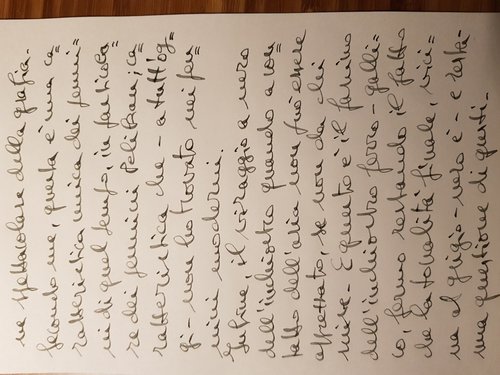 ne spettacolare della grafia.
Secondo me, questa è una ca=
ratteristica unica dei penni=
ni di quel tempo, in particola=
re dei pennini Pelikan; ca=
ratteristica che - a tutt'og=
gi - non ho trovato nei pen=
nini moderni.
Infine, il viraggio a nero
dell'inchiostro quando a con=
tatto dell'aria non può essere
apprezzato, se non da chi
scrive. E questo è il fascino
dell'inchiostro ferro-galli=
co, fermo restando il fatto
che la tonalità finale, vici=
na al grigio-nero è - e resta -
una questione di gusti.